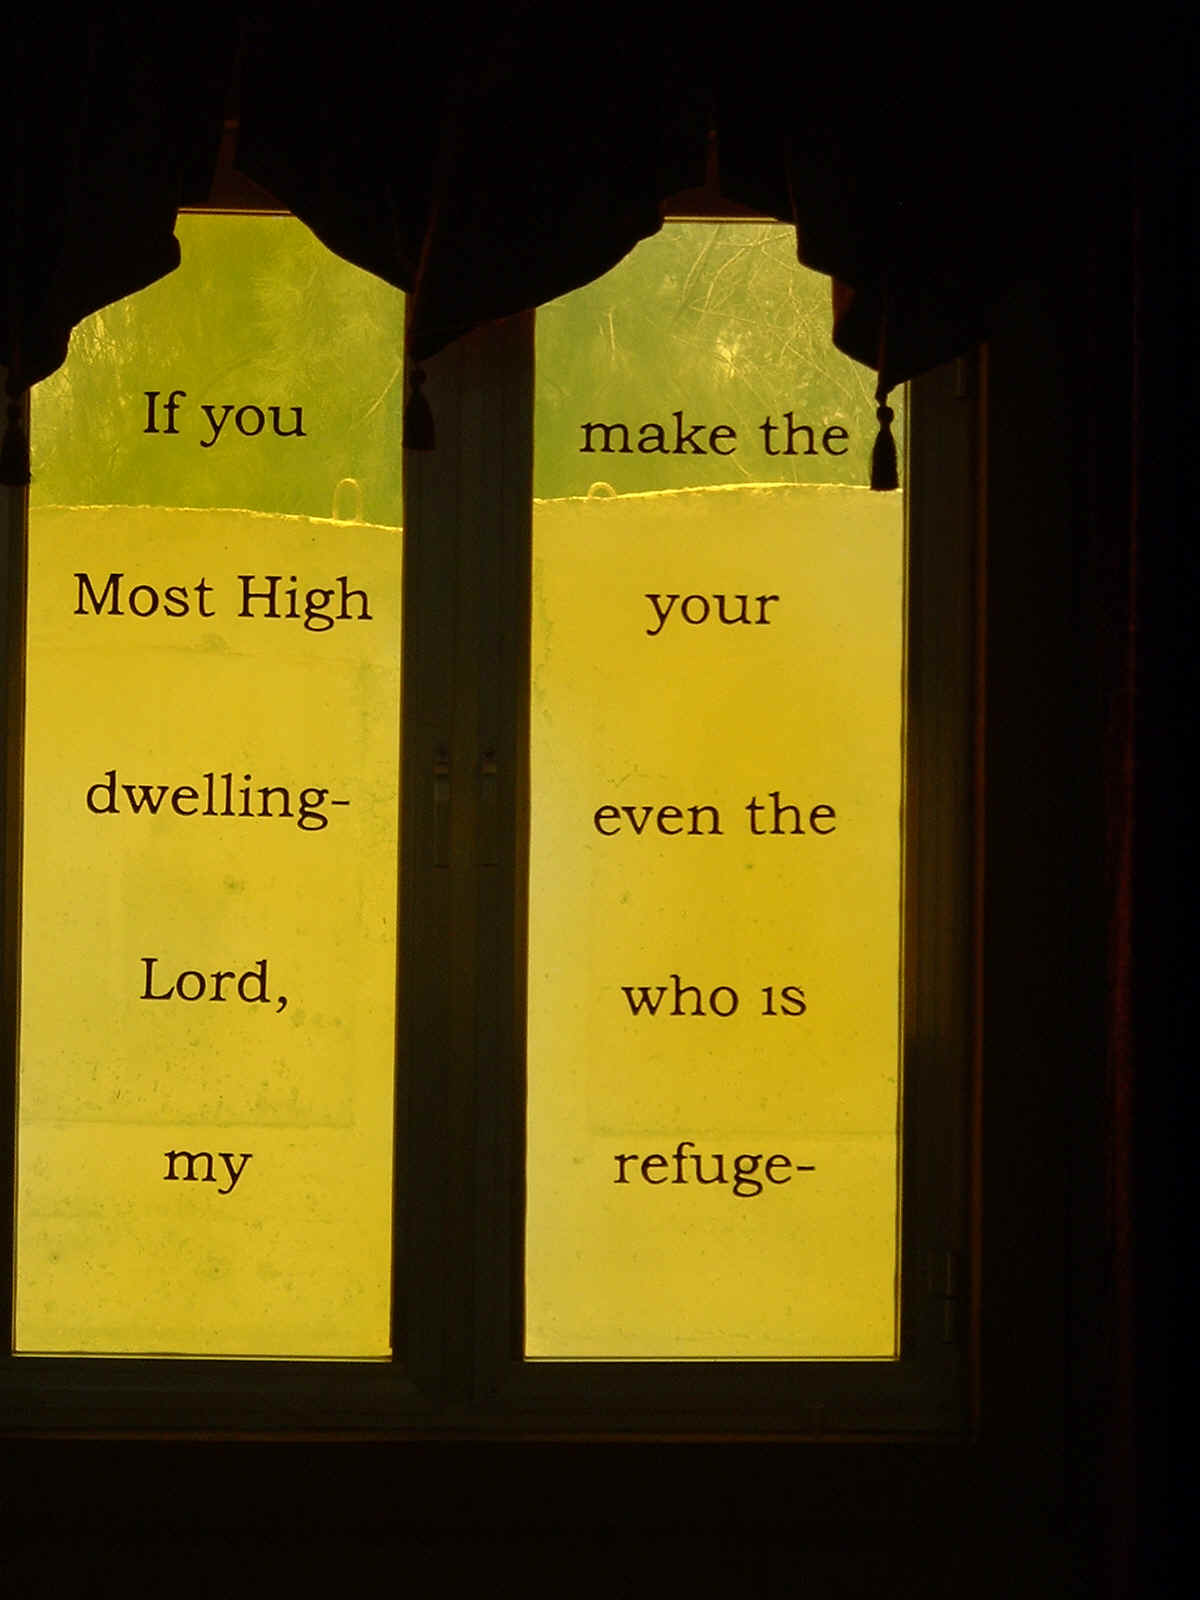 If you make the
Most High your
dwelling- even the
Lord, who is
my refuge-